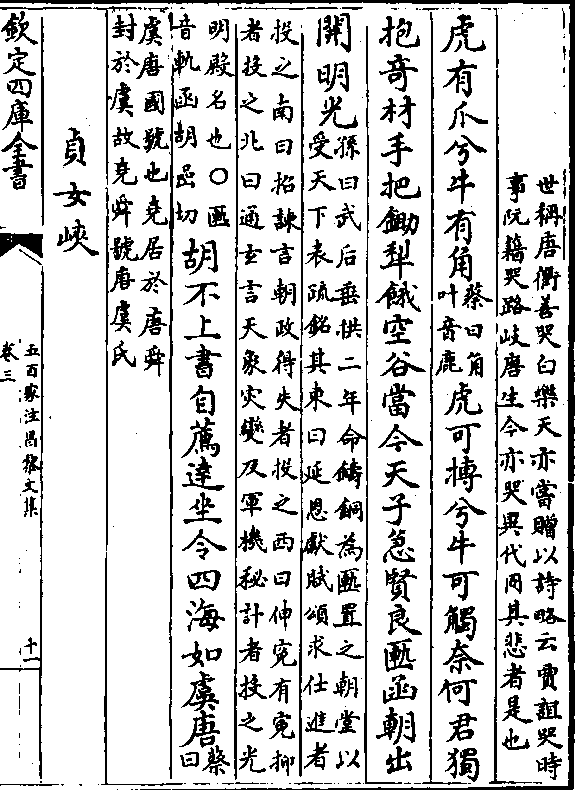 世稱唐衢善哭白樂天亦嘗贈以詩略云賈誼哭時
事阮籍哭路岐唐生今亦哭異代同其悲者是也
虎有爪兮牛有角蔡曰角
叶音鹿虎可搏兮牛可觸奈何君獨
抱奇材手把鋤犁餓空谷當今天子急賢良匭函朝出
開明光孫曰武后垂拱二年命鑄銅為匭置之朝堂以
受天下表疏銘其東曰延恩獻賦頌求仕進者
投之南曰招諫言朝政得失者投之西曰伸寃有寃抑
者投之北曰通玄言天象災變及軍機秘計者投之光
明殿名也○匭
音軌函胡嵒切胡不上書自薦達坐令四海如虞唐蔡
曰
虞唐國號也堯居於唐舜
封於虞故堯舜號唐虞氏
貞女峽
欽定四庫全書
五百家注昌黎文集
卷三
十一